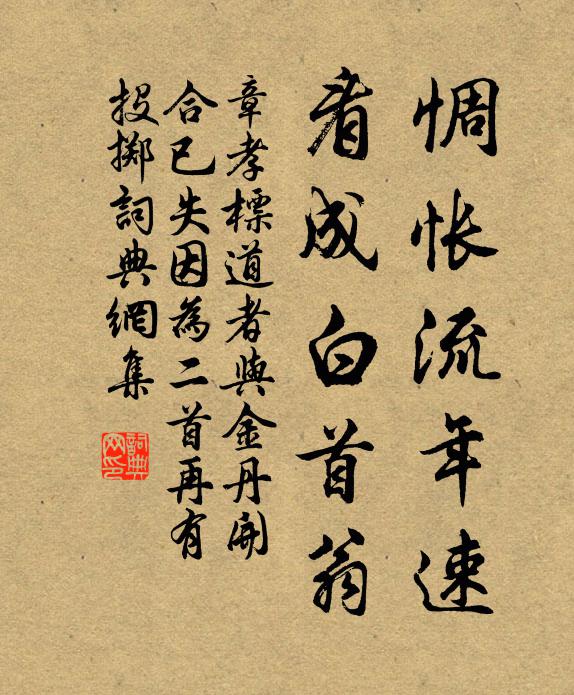 惆怅流年速
看成白首翁
章孝標道者與金丹開
合已失因為二首再有
投擲詞典網集
詞典
网印